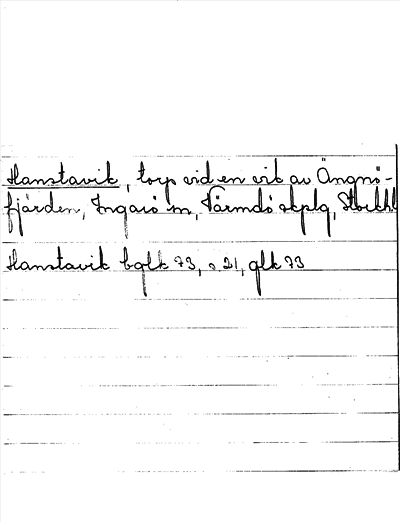 Hamstavik, torp vid en vik av Ängsö-
fjärden, Ingarö sn, Värmdö skplg, Stockhl
Hamstavik bglk 73, s 21, glk 73